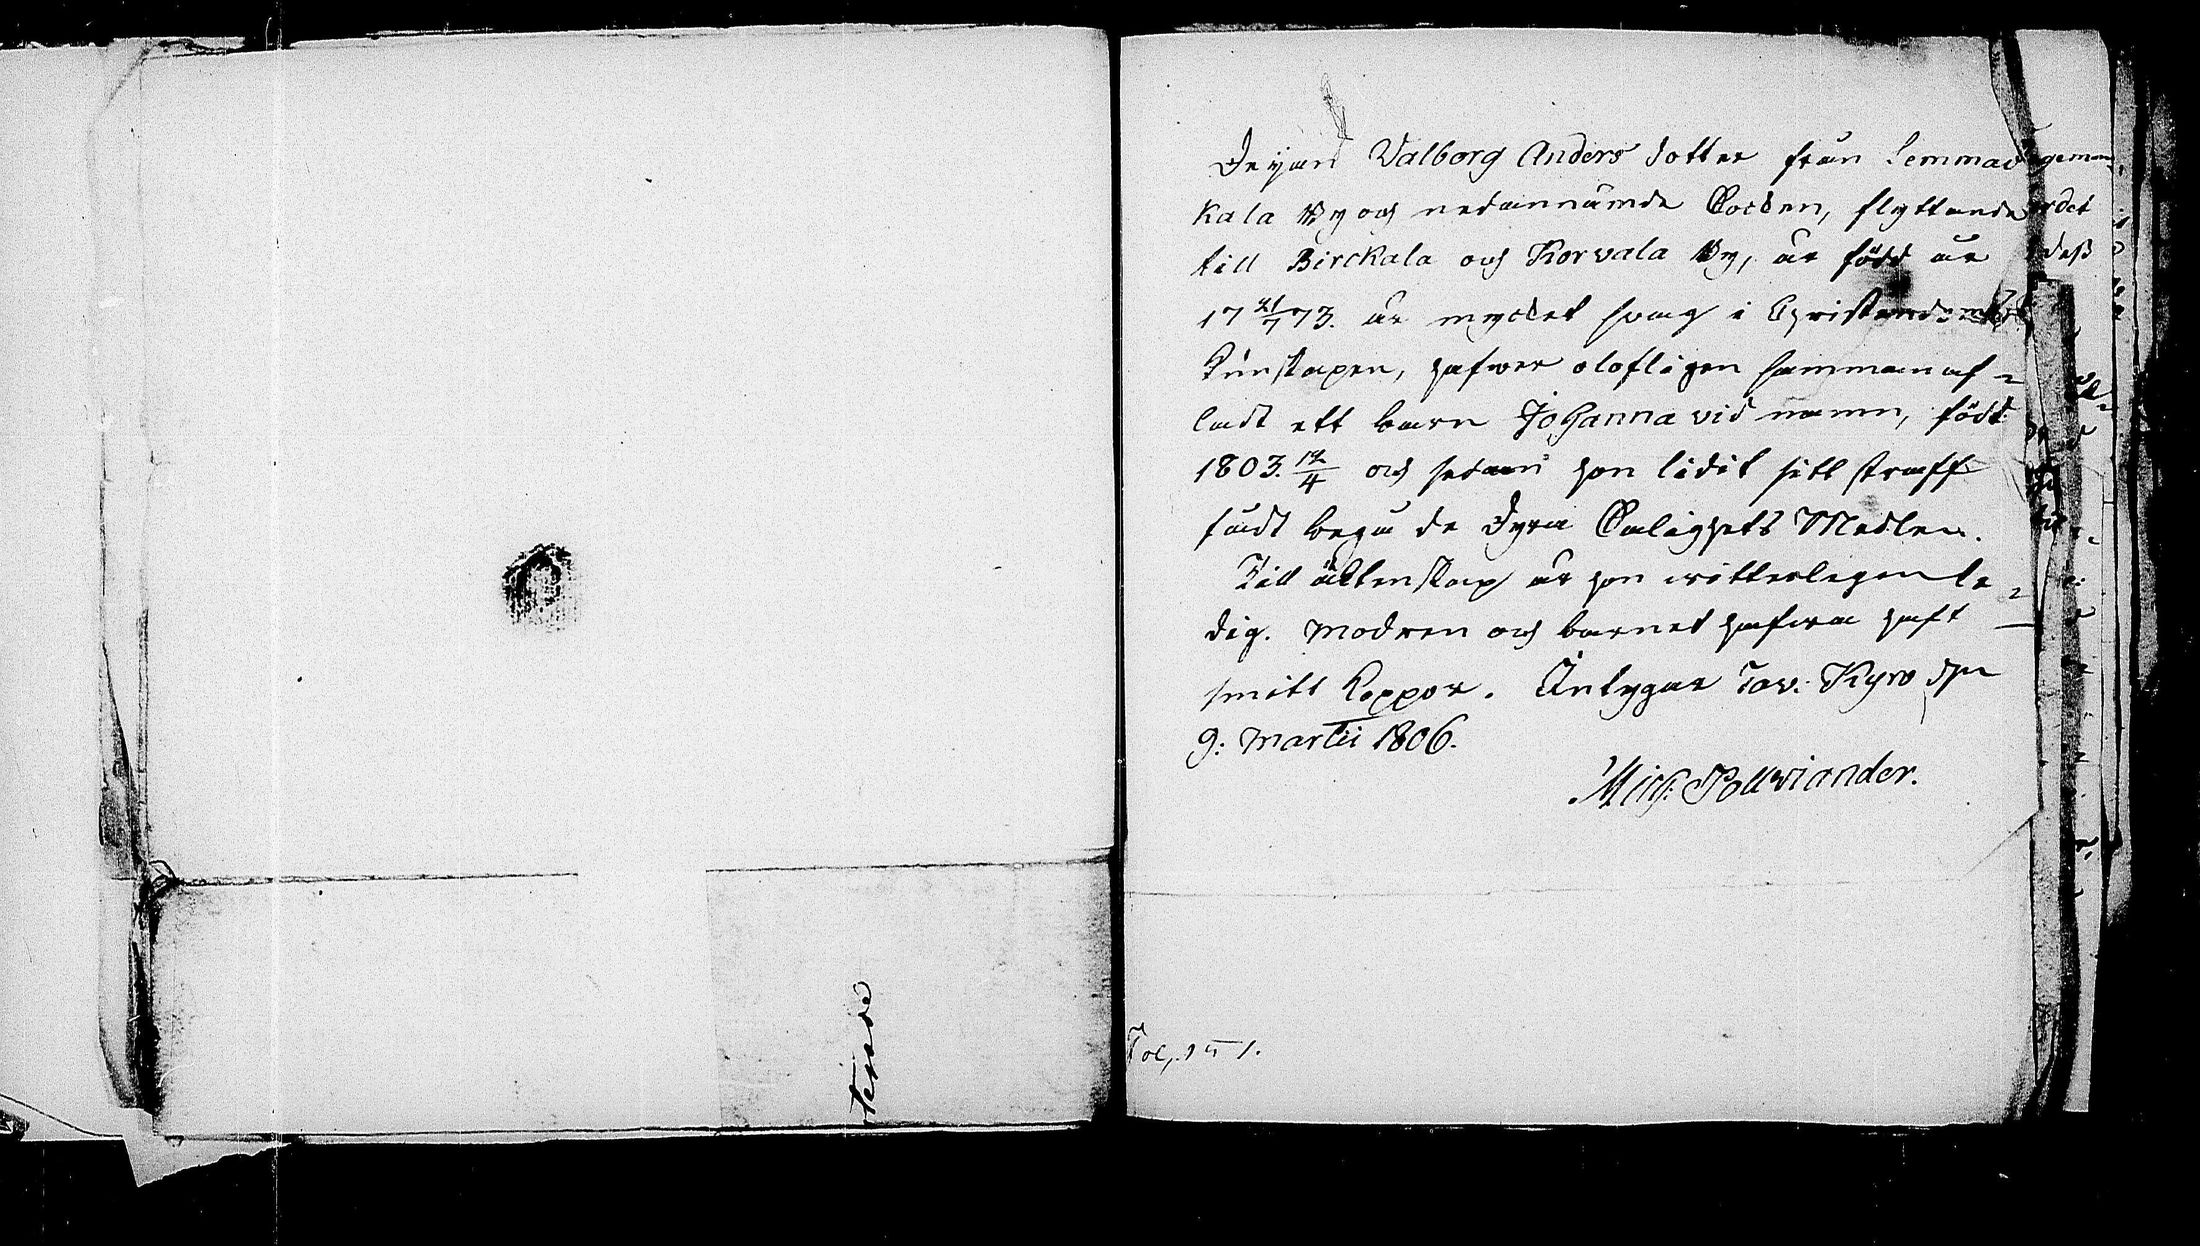 Pijan Valborg Anders dotter från Lemma
kala By och nedannämde Socken, flyttande
till Birckala och Korvala By, är född år
17 21/7 73. är mycket svag i Christendoms
kunskapen, hafwer olofligen sammanaf-
ladt ett barn Johanna vid namn, född
1803. 12/4 och sedan hon lidit sitt straff
fådt begå de dyra Salighets Medlen.
Till äktenskap är hon witterlegen le-
dig. Modren och barnet hafwa haft
smitt koppor. Antygar Tav: Kyro den
9: Martii 1806.
Mich: Pollviander.
Fol, 151.